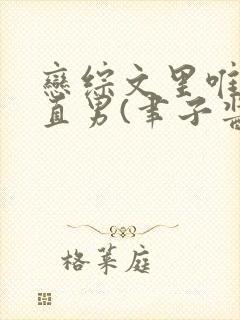 戀综文里唯
直男(聿子酱
格莱庭